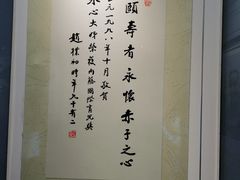 頤壽者永懷赤子之心
元一九九八年十月敬賀
氷心大姊榮獲内藤國際育兒奬
趙樸初時年九十有二